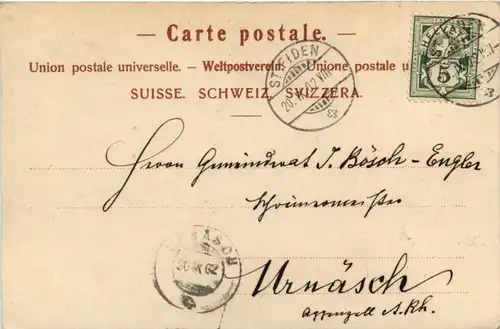 — Carte postale. —
Union postale universelle. — Weltpostverein. — Unione postale u
SUISSE. SCHWEIZ. SVIZZERA.
ST. FIDEN
20. IX. 02. VIII
5
Herrn Gemeinderat J. Bösch-Engler
Schreinermeister
Urnäsch
Appenzell A.Rh.